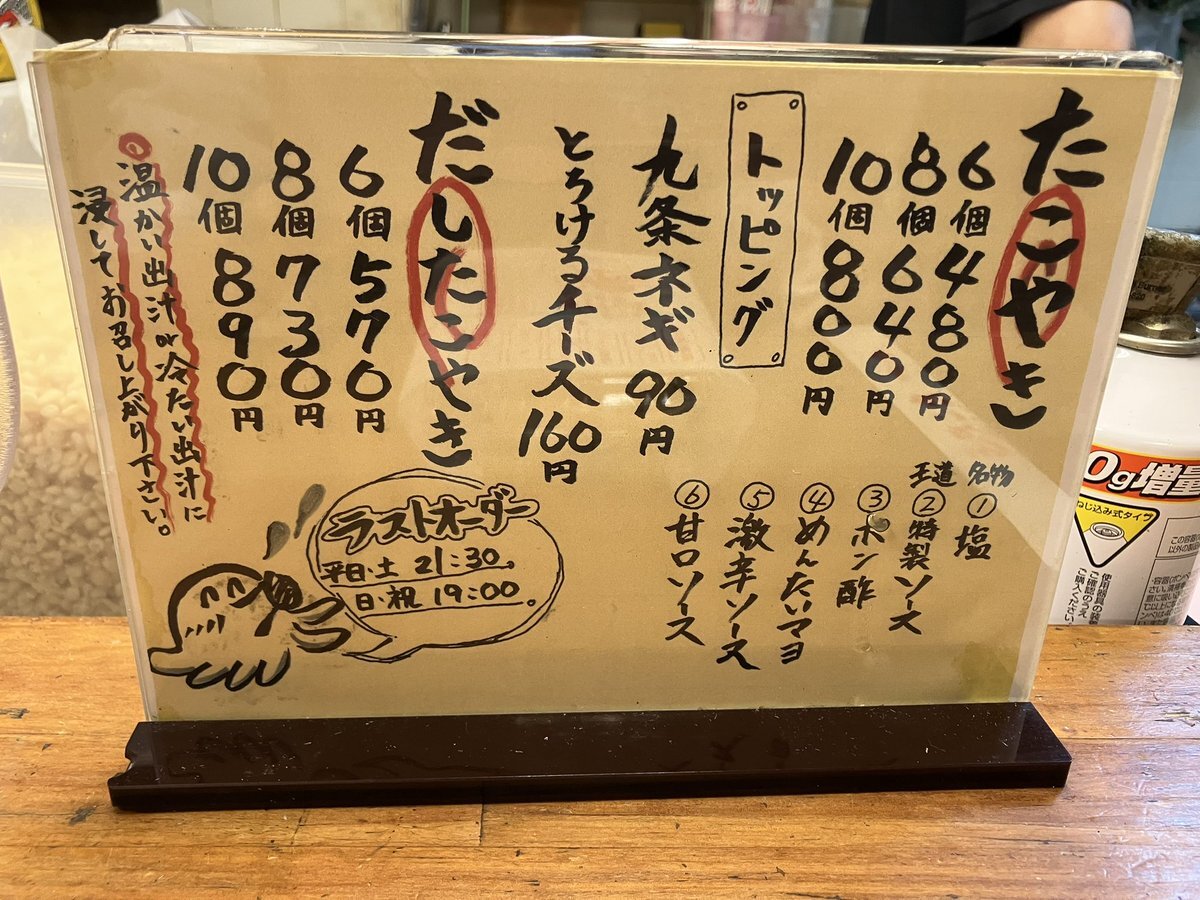 たこやき
6個480円
8個640円
10個800円
トッピング
九条ネギ 90円
とろけるチーズ 160円
名物 ①塩
王道 ②特製ソース
③ポン酢
④めんたいマヨ
⑤激辛ソース
⑥甘口ソース
だしたこやき
6個570円
8個730円
10個890円
温かい出汁or冷たい出汁に
浸してお召し上がり下さい。
ラストオーダー
平日・土 21:30。
日・祝 19:00。
0g増量
ねじ込み式タイプ